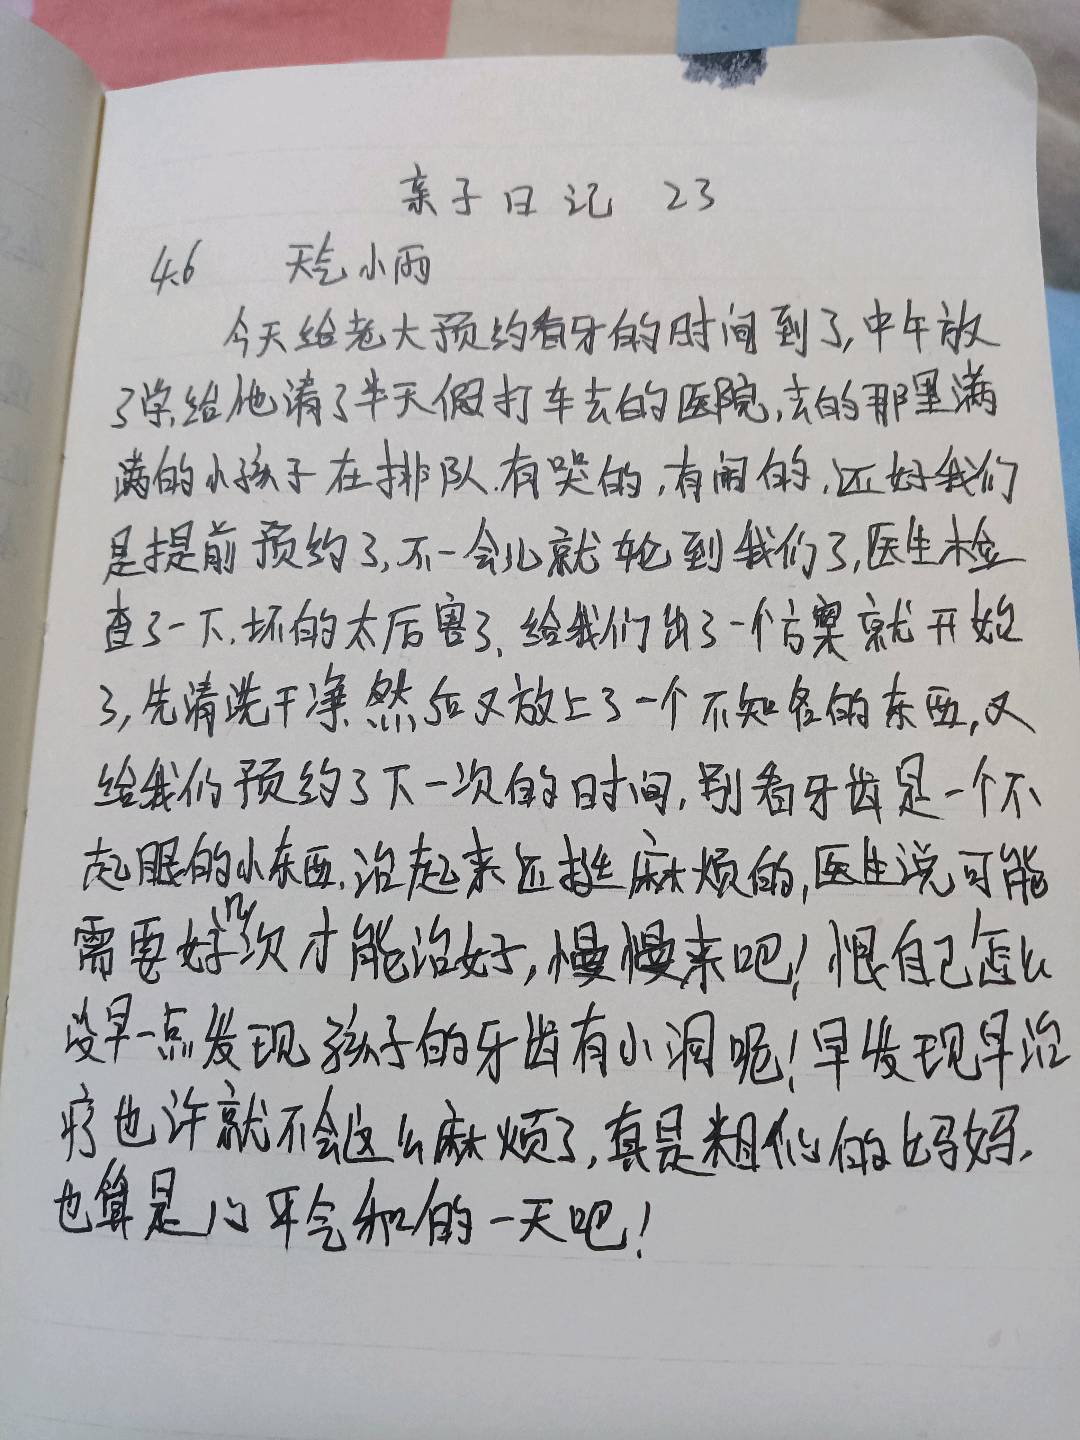 亲子日记 23
4.6 天气小雨
今天给老大预约看牙的时间到了,中午放
了学,给他请了半天假打车去的医院,去的那里满
满的小孩子在排队,有哭的,有闹的,还好我们
是提前预约了,不一会儿就轮到我们了,医生检
查了一下,坏的太厉害了,给我们出了一个方案就开始
了,先清洗干净,然后又放上了一个不知名的东西,又
给我们预约了下一次的时间,别看牙齿是一个不
起眼的小东西,治起来还挺麻烦的,医生说可能
需要好几次才能治好,慢慢来吧!恨自己怎么
没早一点发现孩子的牙齿有小洞呢!早发现早治
疗也许就不会这么麻烦了,真是粗心的妈妈.
也算是心平气和的一天吧!